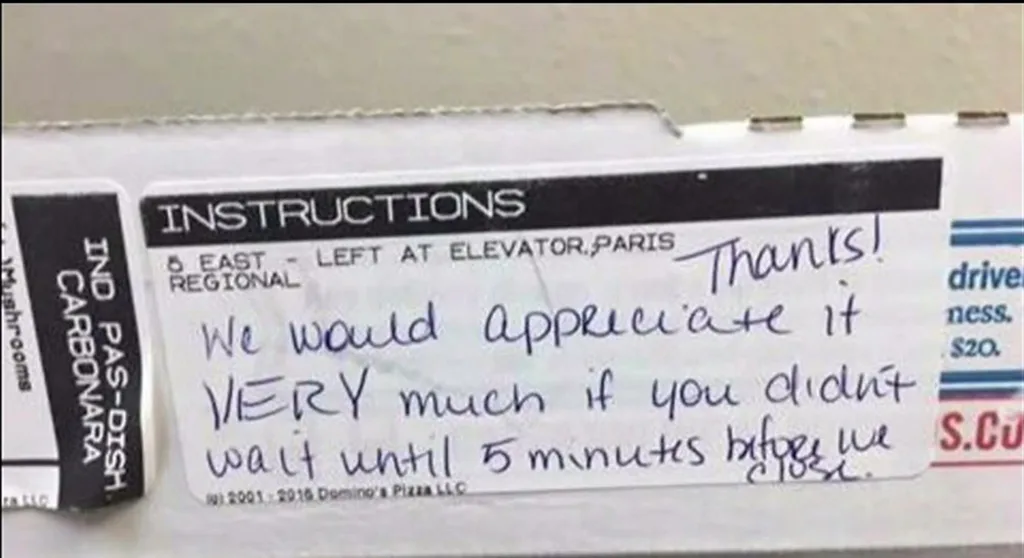 INSTRUCTIONS
5 EAST - LEFT AT ELEVATOR,PARIS
REGIONAL
Thanks!
We would appreciate it
VERY much if you didn't
wait until 5 minutes before we
close.
(c) 2001 - 2016 Domino's Pizza LLC
IND PAS-DISH
CARBONARA
Mushrooms
LLC
drive
ness.
$20.
S.Co